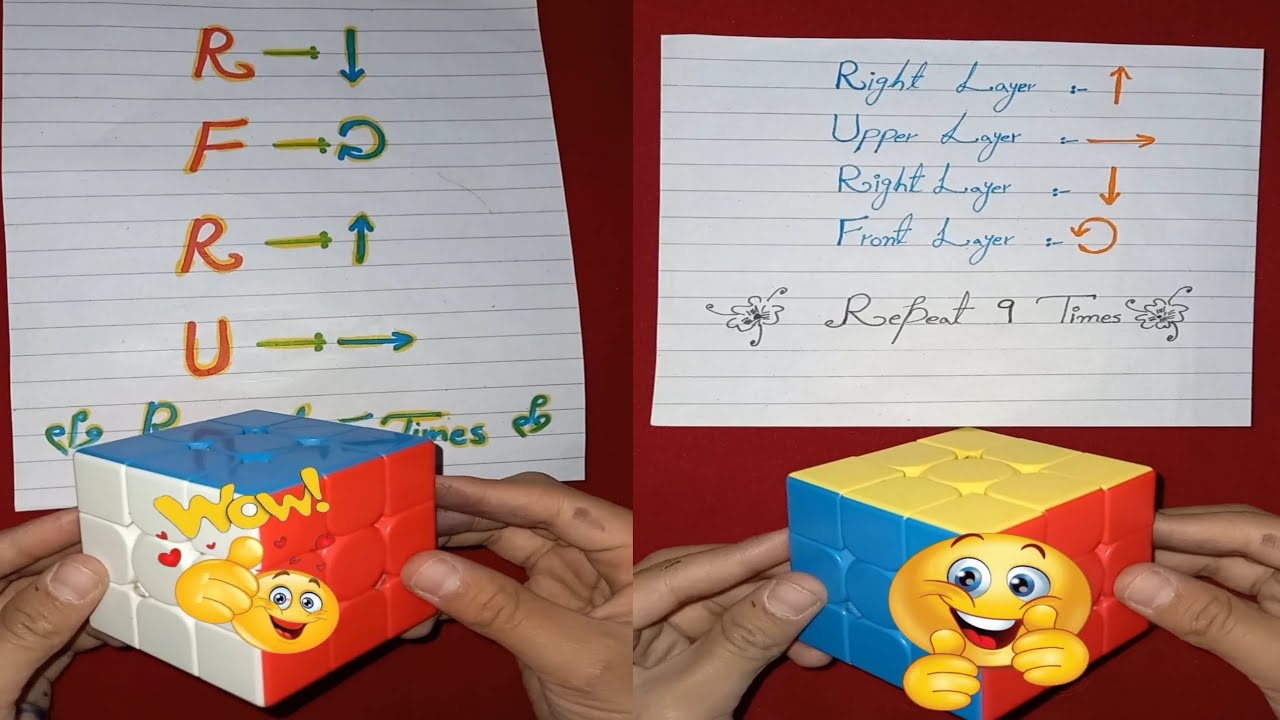 R → ↓
F → ↻
R → ↑
U → →
Times
Wow!
Right Layer :- ↑
Upper Layer :- →
Right Layer :- ↓
Front Layer :- ↺
Repeat 9 Times